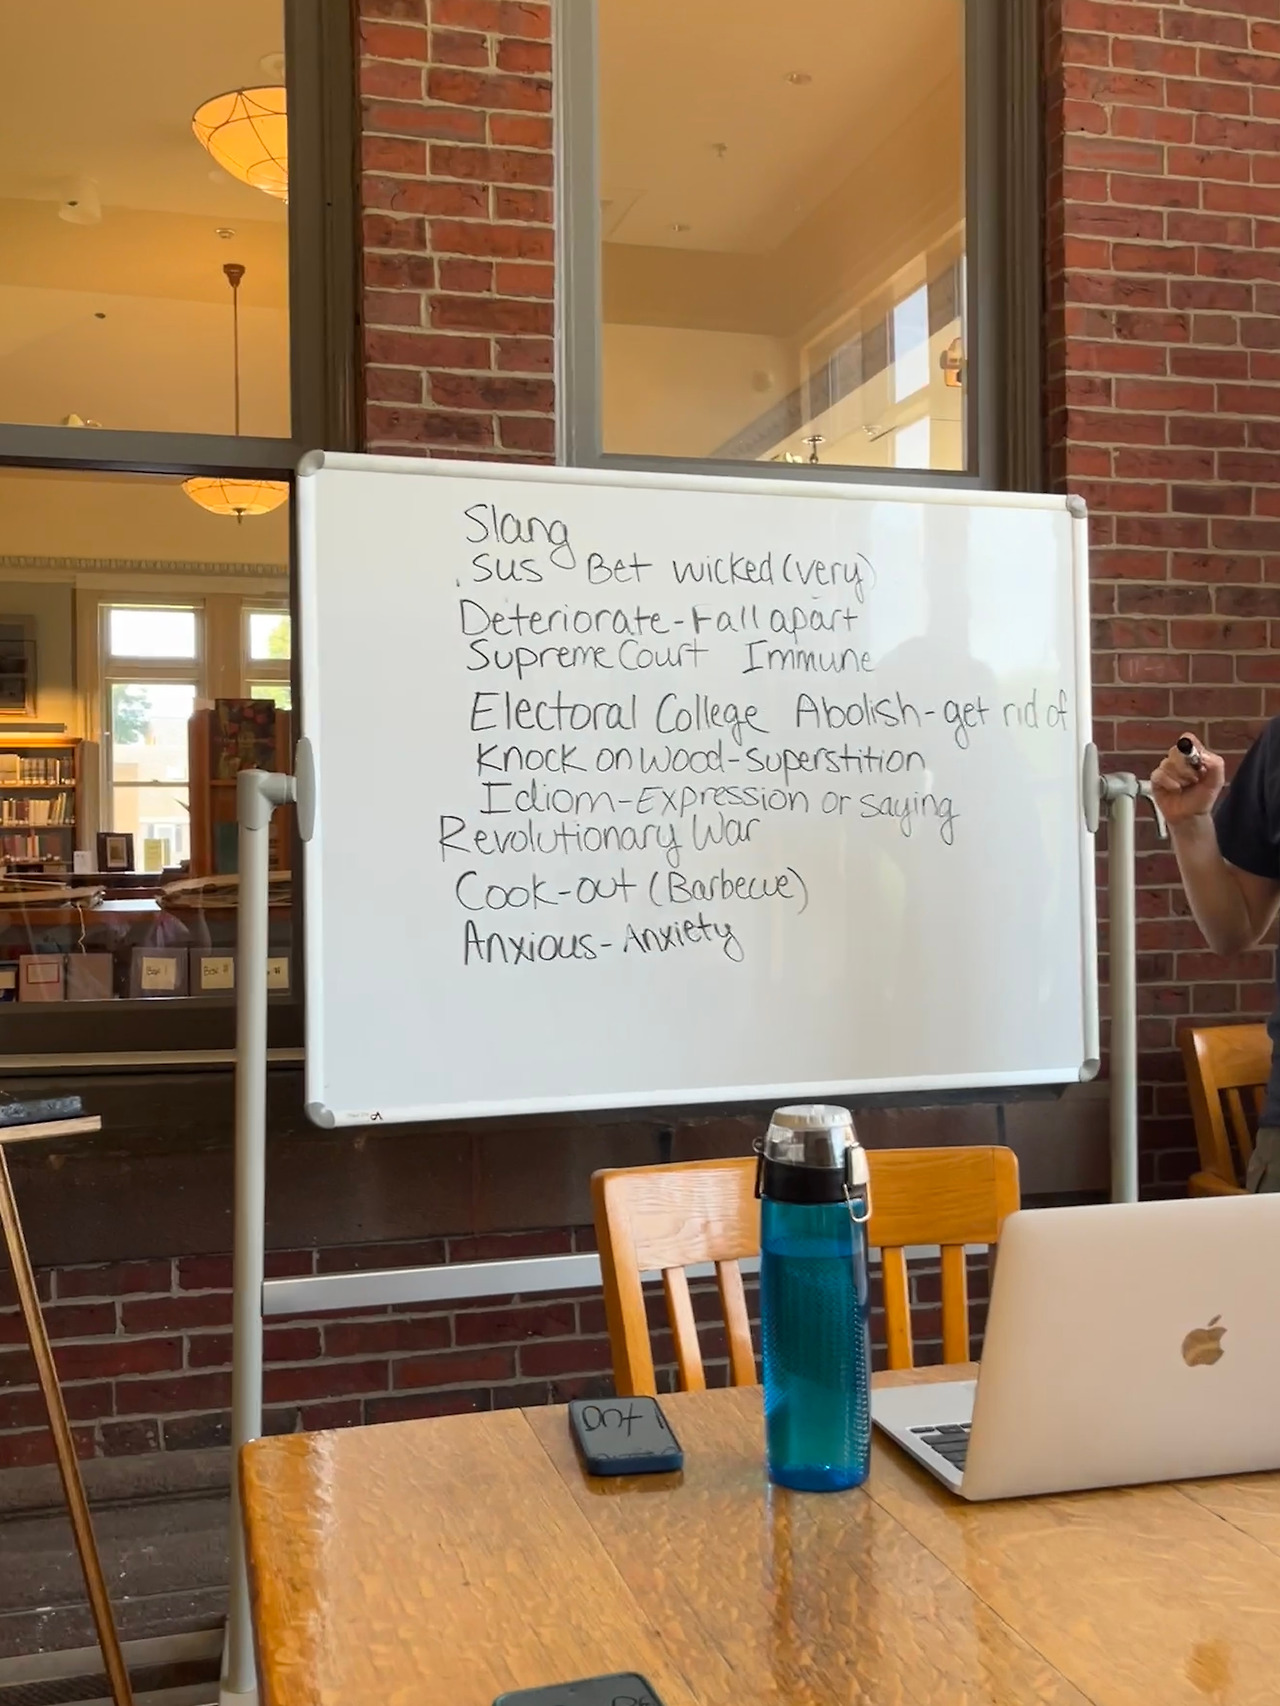 Slang
.sus Bet wicked (very)
Deteriorate - Fall apart
Supreme Court Immune
Electoral College Abolish - get rid of
Knock on Wood - Superstition
Idiom - Expression or saying
Revolutionary War
Cook-out (Barbecue)
Anxious - Anxiety
Box 1